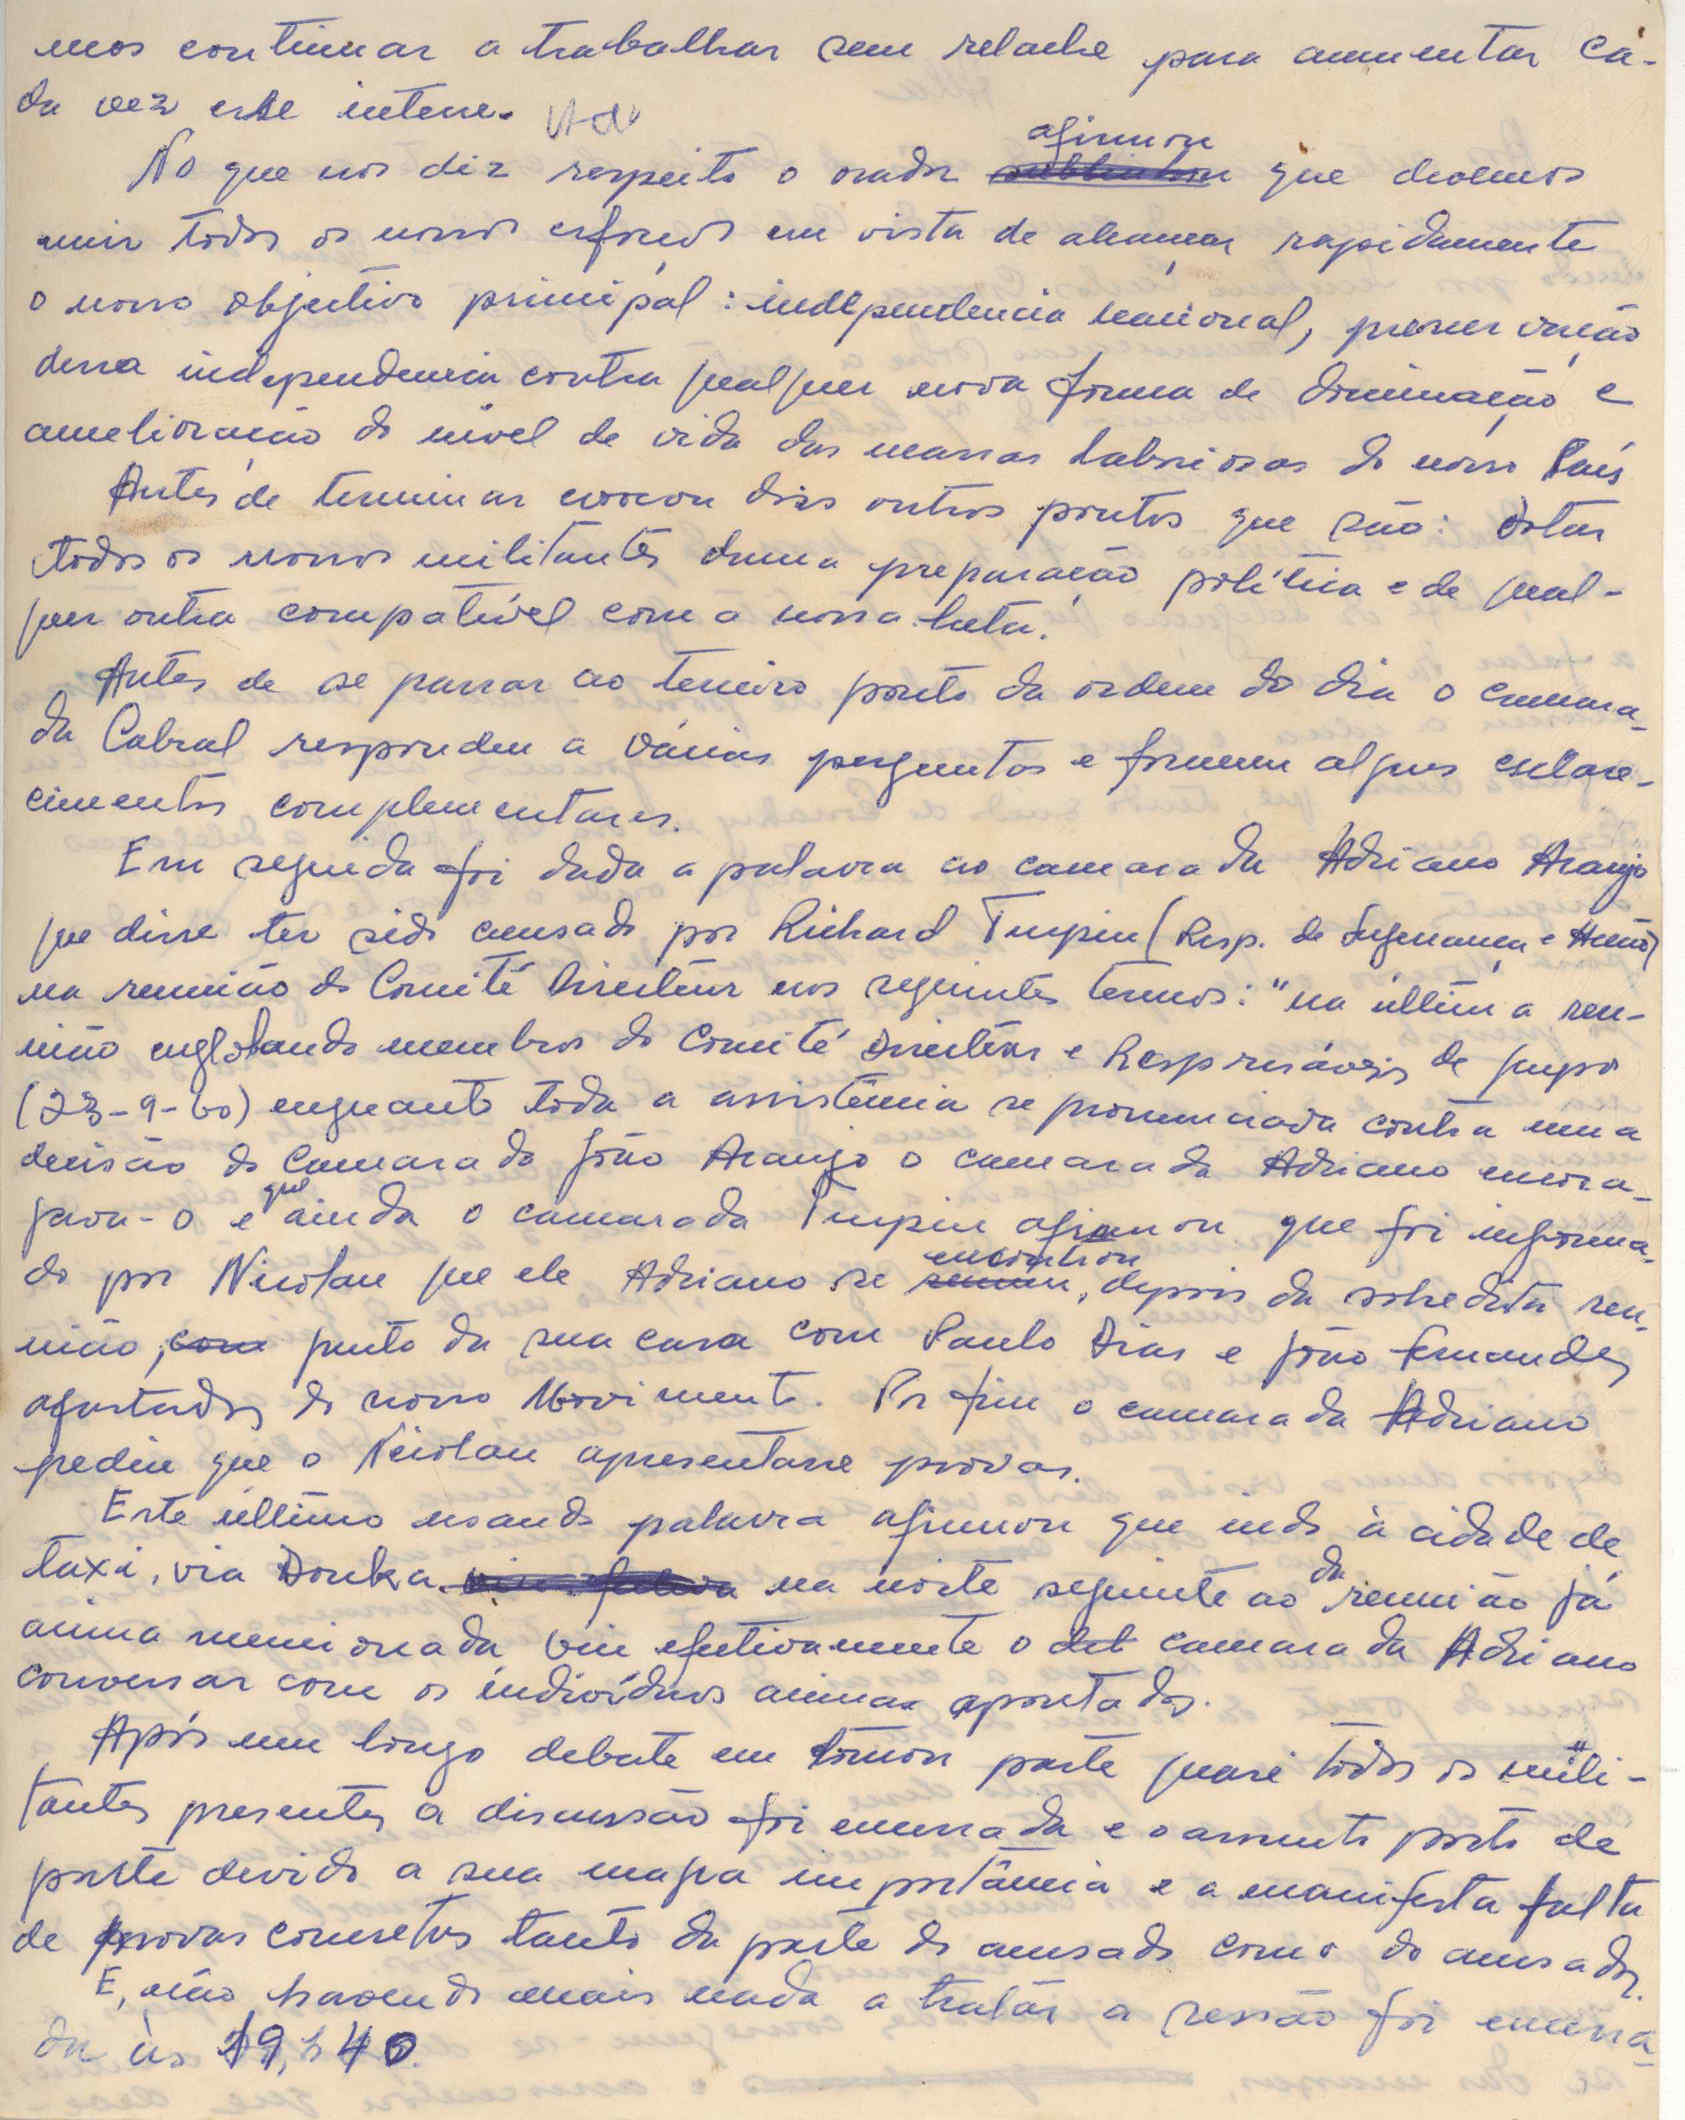 mos continuar a trabalhar sem relache para aumentar ca-
da vez esse interesse.
No que nos diz respeito o orador afirmou que devemos
unir todos os nossos esforços em vista de alcançar rapidamente
o nosso objectivo principal: independencia nacional, preservação
dessa independencia contra qualquer nova forma de dominação e
amelioração do nível de vida das massas laboriosas do nosso País
Antes de terminar evocou dois outros pontos que são: dotar
todos os nossos militantes duma preparação política e de qual-
quer outra compatível com a nossa luta.
Antes de se passar ao terceiro ponto da ordem do dia o camara-
da Cabral respondeu a várias perguntas e forneceu alguns esclare-
cimentos complementares.
Em seguida foi dada a palavra ao camarada Adriano Araujo
que disse ter sido acusado por Richard Turpin (Resp. de Segurança e
na reunião do Comité Directeur nos seguintes termos: "na última reu-
nião englobando membros do Comité Directeur e Responsáveis de grupo
(23-9-60) enquanto toda a assistência se pronunciava contra uma
decisão do Camarada João Araujo o camarada Adriano encora-
java-o e que ainda o camarada Turpin afirmou que foi informa-
do por Nicolau que ele Adriano se encontrou, depois da sobredita reu-
nião, junto da sua casa com Paulo Dias e João Fernandes
afastados do nosso Movimento. Por fim o camarada Adriano
pediu que o Nicolau apresentasse provas.
Este último usando palavra afirmou que indo à cidade de
taxi, via Donka na noite seguinte ao da reunião já
acima mencionada viu efectivamente o camarada Adriano
conversar com os indivíduos acima apontados.
Após um longo debate em tomou parte quasi todos os mili-
tantes presentes a discussão foi encerrada e o assunto posto de
parte devido a sua magra importância e a manifesta falta
de provas concretas tanto da parte do acusado como do acusador.
E, não havendo mais nada a tratar a sessão foi encerra-
da às 19,h 40.